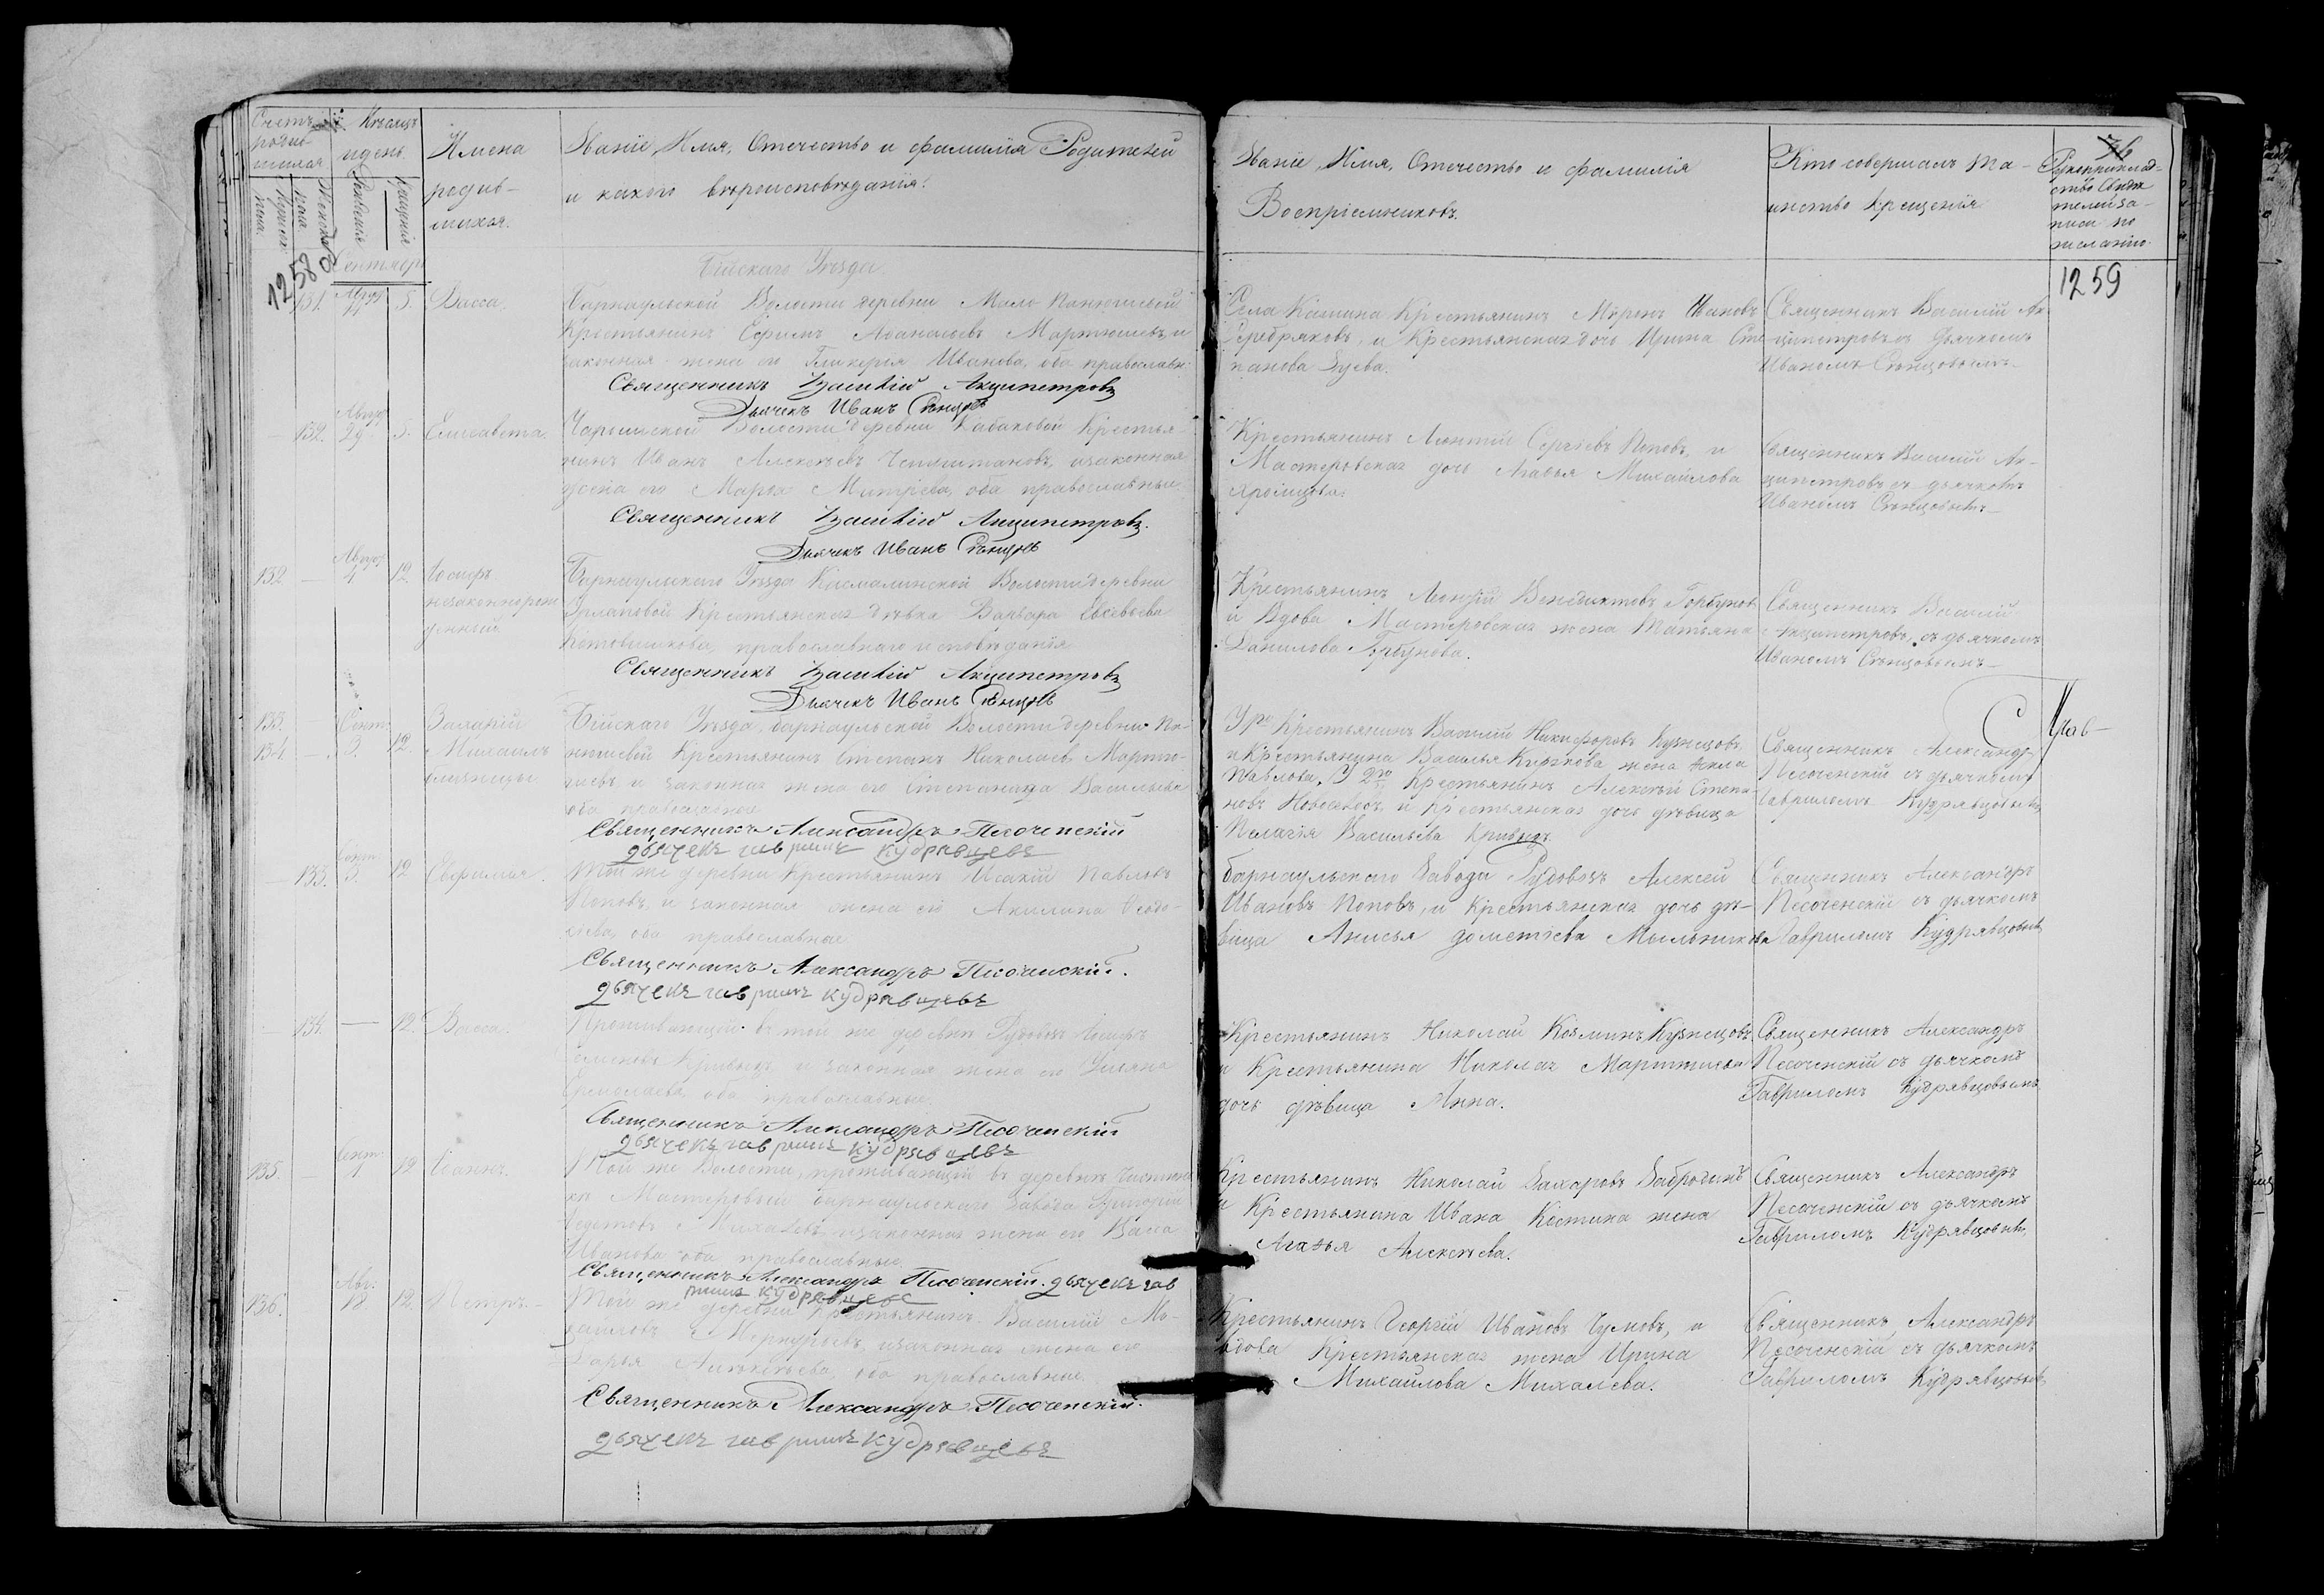 Счетъ родив-
шихся
Мужеска пола
Женска пола
Мѣсяцъ
и день
Рожденія
Крещенія
Имена
родив-
шихся.
Званіе, Имя, Отчество и фамилія Родителей
и какого вѣроисповѣданія.
1258 об
Сентябрь
Бійскаго Уѣзда.
131. Авгус 5. Васса.
Барнаульской Волости деревни Мало Панюшевой
Крестьянинъ Ефимъ Аѳанасьевъ Мартюшевъ, и
законная жена его Гликерія Иванова, оба православн.
Священникъ Василій Акципетровъ
Дьячекъ Иванъ Сѣнцовъ
132. Авгус 29 5. Елисавета.
Чарышской Волости деревни Кабаковой Крестья-
нинъ Иванъ Алексѣевъ и законная
жена его Марѳа Митріева, оба православные
Священникъ Василій Акципетровъ.
Дьячекъ Иванъ Сѣнцовъ
132 — Авгус 4 12. Іосифъ
незаконнорож
денный
Барнаульскаго Уѣзда Касмалинской Волости деревни
Урлаповой Крестьянская дѣвка Варвара Евсевьева
православнаго исповѣданія
Священникъ Василій Акципетровъ
Дьячекъ Иванъ Сѣнцовъ
133.
134 — Сент 5. 12.
Михаилъ
близнецы
Бійскаго Уѣзда, барнаульской Волости деревни Па-
нюшевой Крестьянинъ Степанъ Николаевъ Мартю-
шевъ, и законная жена его Степанида Васильева
оба православные
Священникъ Александръ Песоченскій
дьячекъ гаврилъ кудрявцевъ
— 133. Сент 5. 12 Евфимья.
Той же деревни Крестьянинъ Исакій Павловъ
Поповъ, и законная жена его Акилина Ѳеодо-
оба православные
Священникъ Александръ Песоченскій.
дьячекъ гаврилъ кудрявцевъ
— 134. — 12. Васса.
Проживающій въ той же деревни Рудовозъ Іосифъ
Кривыхъ, и законная жена его Ульяна
Ермолаева, оба православные.
Священникъ Александръ Песоченскій
дьячекъ гаврилъ кудрявцевъ
135. — Сент 1 12 Іоаннъ.
Той же Волости, проживающій въ деревнѣ
Мастеровый барнаульскаго Завода Григорій
Ѳедотовъ Михалевъ, и законная жена его Васса
Иванова оба православные.
Священникъ Александръ Песоченскій. дьячекъ гав
рилъ кудрявцевъ
136. Авг. 18 12. Петръ. —
Той же деревни Крестьянинъ Василій Ми-
хайловъ Меркурьевъ, и законная жена его
Дарья Алексѣева, оба православные.
Священникъ Александръ Песоченскій.
дьячекъ гаврилъ кудрявцевъ
Званіе, Имя, Отчество и фамилія
Воспріемниковъ.
Кто совершалъ та-
инство крещенія
36
Рукоприклад-
ство свидѣ
телей за-
писи по
желанію.
1259
Села Кашина Крестьянинъ Миронъ Ивановъ
Серебряковъ, и Крестьянская дочь Ирина Сте-
панова Зуева.
Священникъ Василій Ак-
ципетровъ съ дьячкомъ
Иваномъ Сѣнцовымъ
Крестьянинъ Леонтій Сергѣевъ Поповъ, и
Мастеровская дочь Агаѳья Михайлова
Священникъ Василій Ак-
ципетровъ съ дьячкомъ
Иваномъ Сѣнцовымъ
Крестьянинъ Венедиктовъ Горбуновъ
и Вдова Мастеровская жена Татьяна
Данилова Горбунова.
Священникъ Василій
Акципетровъ съ дьячкомъ
Иваномъ Сѣнцовымъ
У 1го Крестьянинъ Василій Никифоровъ Кузнецовъ
и Крестьянина Василья жена Ѳекла
Павлова. У 2го Крестьянинъ Алексѣй Степа-
новъ и крестьянская дочь дѣвица
Пелагія Васильева Кривыхъ
Священникъ Александръ
Песоченскій съ дьячкомъ
Гавриломъ Кудрявцовымъ
барнаульскаго Завода Рудовозъ Алексей
Ивановъ Поповъ, и Крестьянская дочь дѣ-
вица Анисья Дометіева Мыльникова
Священникъ Александръ
Песоченскій съ дьячкомъ
Гавриломъ Кудрявцовымъ
Крестьянинъ Николай Козминъ Кузнецовъ
и Крестьянина Николая Мартюшева
дочь дѣвица Анна.
Священникъ Александръ
Песоченскій съ дьячкомъ
Гавриломъ Кудрявцовымъ
Крестьянинъ Николай Захаровъ Забродинъ
и Крестьянина Ивана Костина жена
Агаѳья Алексѣева.
Священникъ Александръ
Песоченскій съ дьячкомъ
Гавриломъ Кудрявцовымъ
Крестьянинъ Георгій Ивановъ Чумовъ, и
вдова Крестьянская жена Ирина
Михайлова Михалева.
Священникъ Александръ
Песоченскій съ дьячкомъ
Гавриломъ Кудрявцовымъ